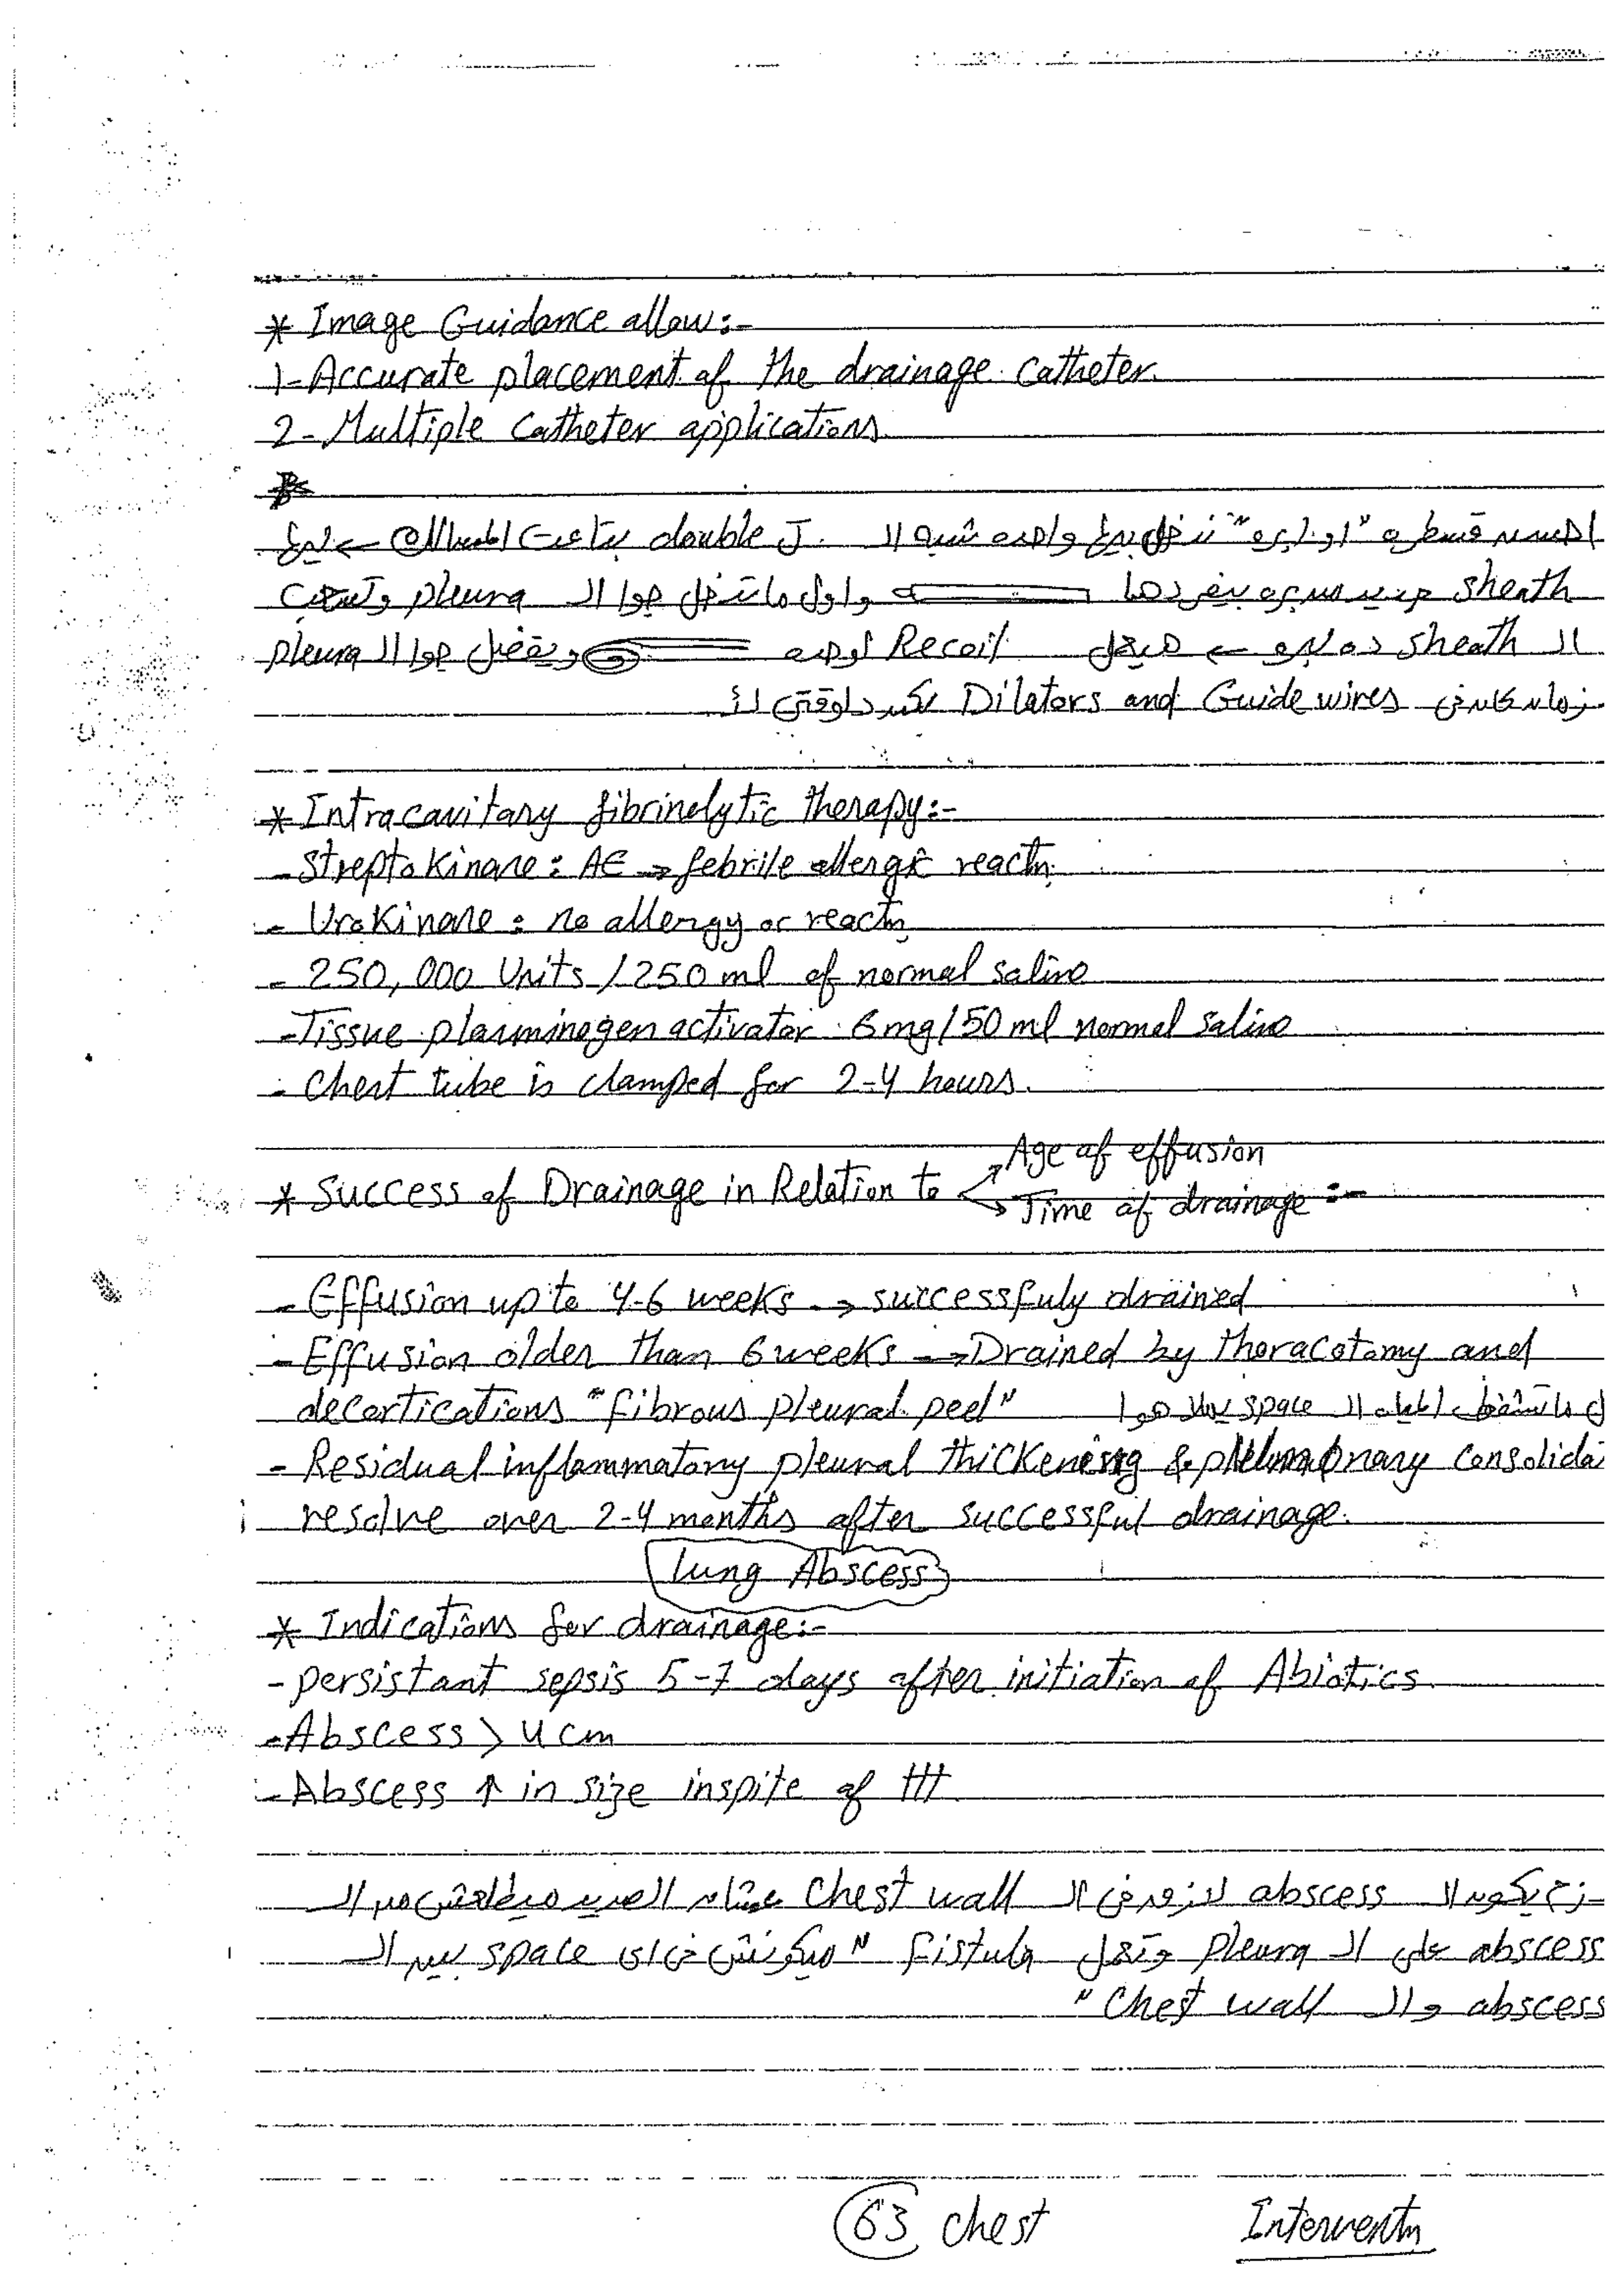 * Image Guidance allow:-
1- Accurate placement of the drainage catheter.
2- Multiple Catheter applications.
احسن قسطرة "او ابرة" تدخل بيها واحدة شبه الـ double J بتاعت المسالك ← ليها
sheath حديد سيرة بيفردها واول ما تدخل جوا الـ pleura وتسحب
الـ sheath ده لبره ← هيعمل Recoil لوحده ويفضل جوا الـ pleura
زمان كان في Dilators and Guide wires لكن دلوقتي لأ
* Intracavitary fibrinolytic therapy:-
- Streptokinase: AE → febrile allergic reactn.
- Urokinase: no allergy or reactn
- 250,000 Units / 250 ml of normal saline
- Tissue plasminogen activator 6 mg / 50 ml normal saline
- Chest tube is clamped for 2-4 hours.
* Success of Drainage in Relation to → Age of effusion
→ Time of drainage :-
- Effusion up to 4-6 weeks → successfuly drained
- Effusion older than 6 weeks → Drained by thoracotomy and
decortications "fibrous pleural peel" ما تشفط المياه الـ space يملا هوا
- Residual inflammatory pleural thickening & pulmonary consolida
resolve over 2-4 months after successful drainage.
lung Abscess
* Indications for drainage:-
- persistant sepsis 5-7 days after initiation of Abiotics.
- Abscess > 4 cm
- Abscess ↑ in size inspite of ttt.
يكون الـ abscess لازق في الـ chest wall عشان الصديد ميطلعش من الـ
abscess على الـ pleura وتعمل fistula "ميكونش في اي space بين الـ
abscess والـ chest wall"
63 chest Interventn